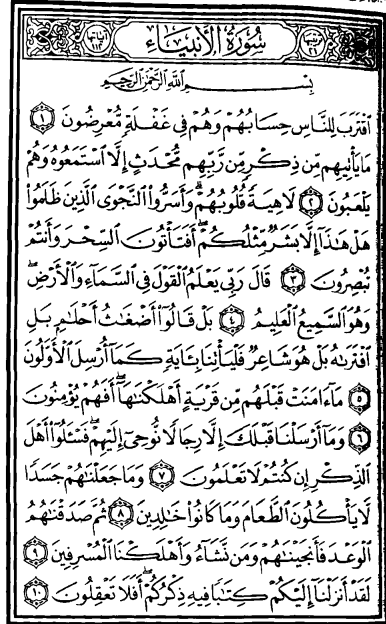 سُورَةُ الأَنبِيَاءِ
بِسْمِ اللَّهِ الرَّحْمَٰنِ الرَّحِيمِ
اقْتَرَبَ لِلنَّاسِ حِسَابُهُمْ وَهُمْ فِي غَفْلَةٍ مُّعْرِضُونَ ١
مَا يَأْتِيهِم مِّن ذِكْرٍ مِّن رَّبِّهِم مُّحْدَثٍ إِلَّا اسْتَمَعُوهُ وَهُمْ
يَلْعَبُونَ ٢ لَاهِيَةً قُلُوبُهُمْ وَأَسَرُّوا النَّجْوَى الَّذِينَ ظَلَمُوا
هَلْ هَٰذَا إِلَّا بَشَرٌ مِّثْلُكُمْ أَفَتَأْتُونَ السِّحْرَ وَأَنتُمْ
تُبْصِرُونَ ٣ قَالَ رَبِّي يَعْلَمُ الْقَوْلَ فِي السَّمَاءِ وَالْأَرْضِ
وَهُوَ السَّمِيعُ الْعَلِيمُ ٤ بَلْ قَالُوا أَضْغَاثُ أَحْلَامٍ بَلِ
افْتَرَاهُ بَلْ هُوَ شَاعِرٌ فَلْيَأْتِنَا بِآيَةٍ كَمَا أُرْسِلَ الْأَوَّلُونَ
٥ مَا آمَنَتْ قَبْلَهُم مِّن قَرْيَةٍ أَهْلَكْنَاهَا أَفَهُمْ يُؤْمِنُونَ
٦ وَمَا أَرْسَلْنَا قَبْلَكَ إِلَّا رِجَالًا نُّوحِي إِلَيْهِمْ فَسْئَلُوا أَهْلَ
الذِّكْرِ إِن كُنتُمْ لَا تَعْلَمُونَ ٧ وَمَا جَعَلْنَاهُمْ جَسَدًا
لَّا يَأْكُلُونَ الطَّعَامَ وَمَا كَانُوا خَالِدِينَ ٨ ثُمَّ صَدَقْنَاهُمُ
الْوَعْدَ فَأَنجَيْنَاهُمْ وَمَن نَّشَاءُ وَأَهْلَكْنَا الْمُسْرِفِينَ ٩
لَقَدْ أَنزَلْنَا إِلَيْكُمْ كِتَابًا فِيهِ ذِكْرُكُمْ أَفَلَا تَعْقِلُونَ ١٠